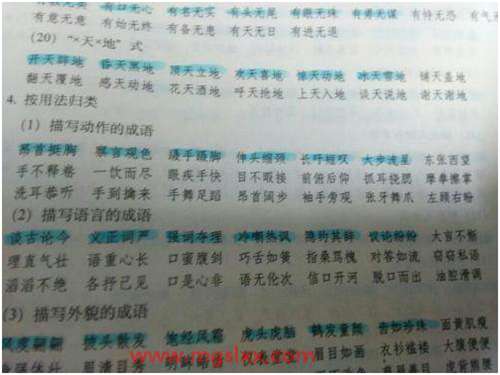 有口无心 有名无实 有头无尾 有眼无珠 有勇无谋 有恃无恐 有气
有意无意 有始无终 有备无患 有天无日 有进无退
(20) “×天×地” 式
开天辟地 昏天黑地 顶天立地 欢天喜地 惊天动地 冰天雪地 铺天盖地
翻天覆地 感天动地 花天酒地 呼天抢地 上天入地 谈天说地 谢天谢地
4. 按用法归类
(1) 描写动作的成语
昂首挺胸 察言观色 蹑手蹑脚 伸头缩颈 长吁短叹 大步流星 东张西望
手不释卷 一饮而尽 眼疾手快 目不暇接 前俯后仰 抓耳挠腮 摩拳擦掌
洗耳恭听 手到擒来 手舞足蹈 昂首阔步 袖手旁观 张牙舞爪 左顾右盼
(2) 描写语言的成语
谈古论今 义正词严 强词夺理 冷嘲热讽 隐约其辞 议论纷纷 大言不惭
理直气壮 语重心长 口蜜腹剑 巧舌如簧 指桑骂槐 对答如流 窃窃私语
滔滔不绝 各抒己见 口是心非 语无伦次 信口开河 脱口而出 油腔滑调
(3) 描写外貌的成语
风度翩翩 披头散发 饱经风霜 虎头虎脑 鹤发童颜 面黄肌瘦
眉清目秀 明眸皓齿 眉目如画 衣衫褴褛 大腹便便
www.mgslxx.com